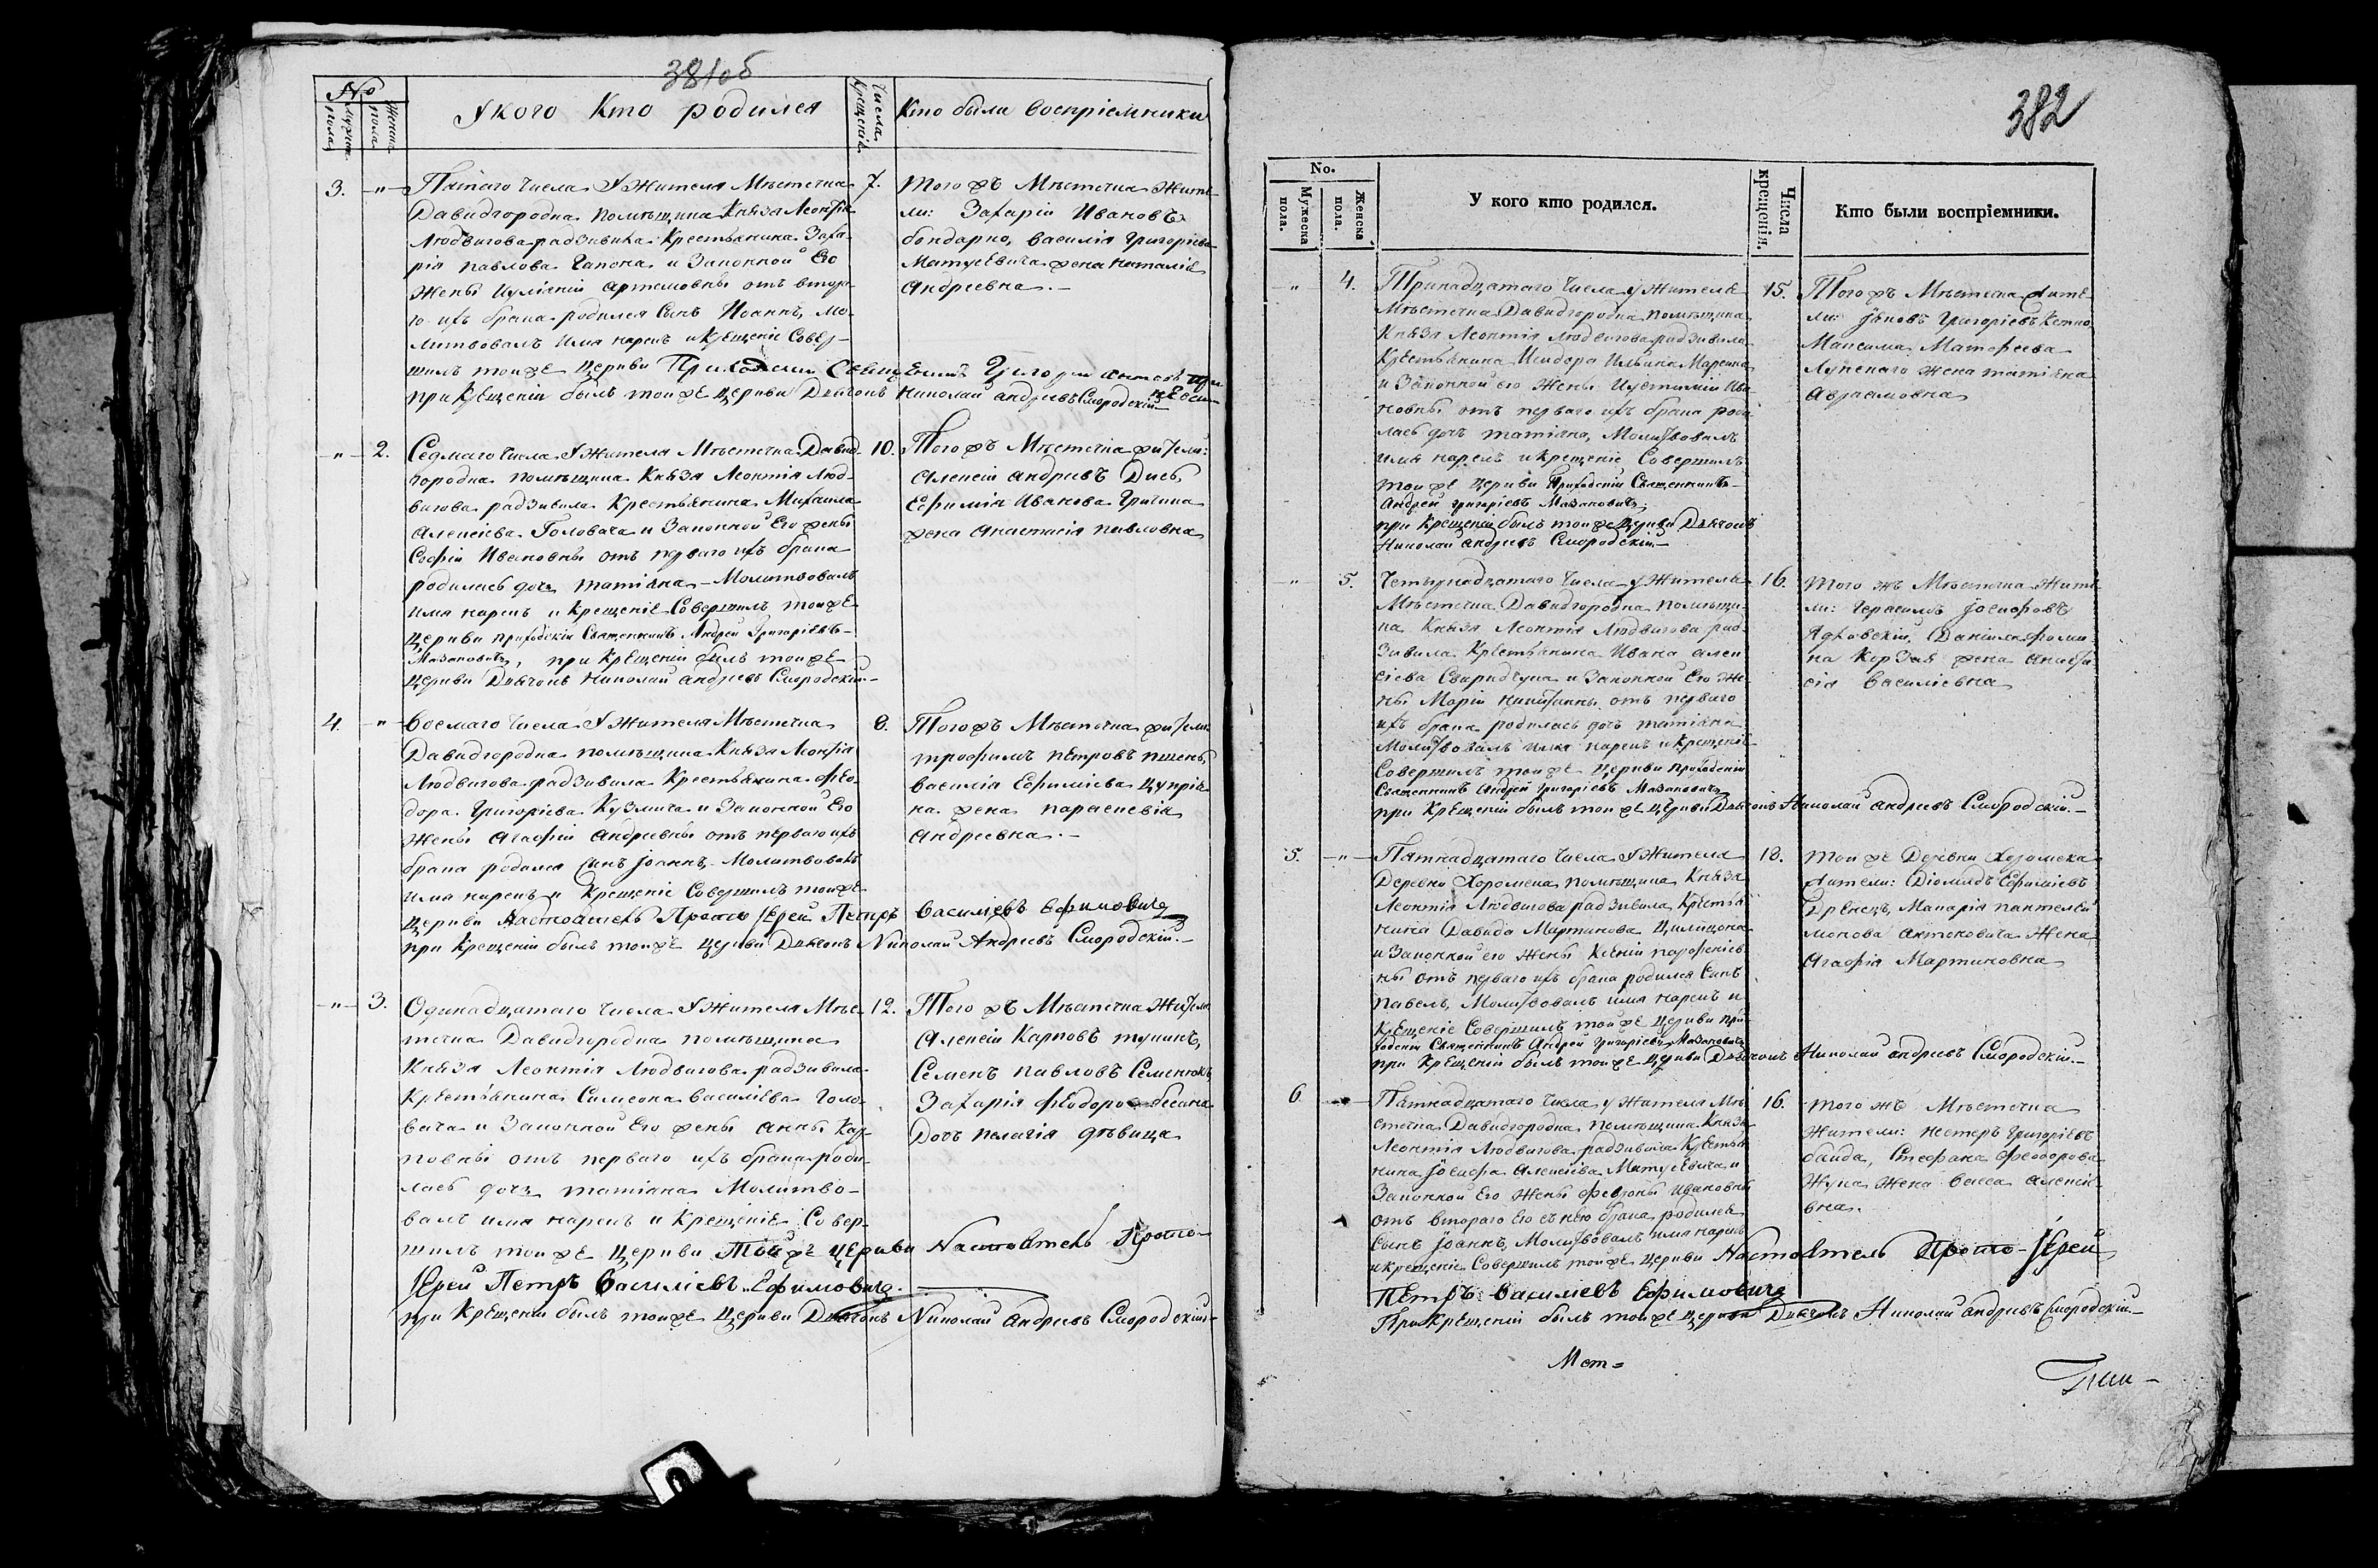 381об
№
Мужеска пола
Женска пола
У кого Кто родился
Числа Крещенія
Кто были воспріемники
3. -"- Пятаго числа У Жителя Мѣстечка
Давидгородка помѣщика Князя Леонтія
Людвигова радзивила Крестьянина Заха-
рія павлова и Законной Его
Жены Іуліаніи Артемовны отъ втора-
го ихъ брака родился Сынъ Иоаннъ, Мо-
литвовалъ имя нарекъ и Крещеніе Совер-
шилъ тойже Церкви Приходскій Священникъ Григорій
при Крещеніи былъ тойже Церкви Дьячокъ Николай андреевъ Смородскій
7. Того жъ Мѣстечка Жите-
ли: Захарій Ивановъ
бондарко, василія григоріева
Матусевича жена наталія
Андреевна.-
-"- 2. Седмаго числа У Жителя Мѣстечка Давид-
городка помѣщика Князя Леонтія Люд-
вигова радзивила Крестьянина Михаила
Алексіева Головача и Законной Его жены
Софіи Ивановны отъ перваго ихъ брака
родилась дочь татіяна - Молитвовалъ
имя нарекъ и Крещеніе Совершилъ тойже
Церкви приходскій Священникъ Андрей Григоріевъ
Мазановичъ, при Крещеніи былъ тойже
Церкви Дьячокъ Николай андреевъ Смородскій-
10. Того жъ Мѣстечка жители:
Алексій андреевъ
Ефимія Иванова Гричина
жена Анастасія павловна
4. -"- Восмаго числа У Жителя Мѣстечка
Давидгородка помѣщика Князя Леонтія
Людвигова радзивила Крестьянина Фео-
дора Григоріева Кузмича и Законной Его
Жены Агафіи Андреевны отъ перваго ихъ
брака родился Сынъ Іоаннъ, Молитвовалъ
имя нарекъ и Крещеніе Совершилъ тойже
Церкви Настоятель Протоіерей Петръ Василіевъ Ефимовичъ
при Крещеніи былъ тойже Церкви Дьячокъ Николай Андреевъ Смородскій.-
8. Того жъ Мѣстечка жители
трофимъ петровъ
василія Ефиміева
жена параскевія
Андреевна.-
-"- 3. Одинадцатаго числа У Жителя Мѣс-
течка Давидгородка помѣщика
Князя Леонтія Людвигова радзивила
Крестьянина Симеона василіева Голо-
вача и Законной Его жены Анны Кар-
повны отъ перваго ихъ брака роди-
лась дочь татіяна Молитво-
валъ имя нарекъ и Крещеніе Совер-
шилъ тойже Церкви Тойже Церкви Настоятель Прото-
Іерей Петръ Василіевъ Ефимовичъ.
при Крещеніи былъ тойже Церкви Дьячокъ Николай андреевъ Смородскій-
12. Того жъ Мѣстечка Жители
Алексій Карповъ
Семенъ павловъ
Захарія Феодорова
Дочь пелагія дѣвица
382
No.
Мужеска пола.
Женска пола.
У кого кто родился.
Числа крещенія.
Кто были воспріемники.
" 4. Тринадцатаго числа у Жителя
Мѣстечка Давидгородка помѣщика
Князя Леонтія Людвигова радзивила
Крестьянина Исидора Ильина
и Законной его Жены Иустиніи Ива-
новны отъ перваго ихъ брака роди-
лась дочь татіяна, Молитвовалъ
имя нарекъ и крещеніе Совершилъ
тойже Церкви Приходскій Священникъ
Андрей григоріевъ Мазановичъ
при Крещеніи былъ тойже Церкви Дьячокъ
Николай андреевъ Смородскій-
15. Того жъ Мѣстечка Жите-
ли: Іяковъ Григоріевъ
Максима Матфеева
жена татіяна
Аврамовна
" 5. Четырнадцатаго числа у Жителя
Мѣстечка Давидгородка помѣщи-
ка Князя Леонтія Людвигова рад-
зивила Крестьянина Ивана алек-
сіева и Законной Его Же-
ны Маріи отъ перваго
ихъ брака родилась дочь татіяна
Молитвовалъ имя нарекъ и Крещеніе
Совершилъ тойже Церкви приходскій
Священникъ Андрей григоріевъ Мазановичъ
при Крещеніи былъ тойже Церкви Дьячокъ Николай андреевъ Смородскій.-
16. того жъ Мѣстечка Жите-
ли: Герасимъ Іосифовъ
Даніила Фоми-
на жена
василіевна
5. -"- Пятнадцатаго числа У Жителя
Деревни Хоромска помѣщика Князя
Леонтія Людвигова радзивила Крестья-
нина Давида Мартинова
и Законной его Жены Ксеніи парфеніев-
ны отъ перваго ихъ брака родился Сынъ
павелъ, Молитвовалъ имя нарекъ и
Крещеніе Совершилъ тойже Церкви при-
ходскій Священникъ Андрей григоріевъ Мазановичъ
при Крещеніи былъ тойже Церкви Дьячокъ Николай андреевъ Смородскій.-
18. тойже Деревни Хоромска
Жители: Діомидъ Ефиміевъ
Макарія пантелей-
монова антоновича Жена
Агафія Мартиновна
6. Пятнадцатаго числа у Жителя Мѣ-
стечка Давидгородка помѣщика Князя
Леонтія Людвигова радзивила Крестья-
нина Іосифа Алексіева Матусевича и
Законной Его Жены Февроніи Ивановны
отъ втораго Его съ нею брака родился
Сынъ Іоаннъ, Молитвовалъ имя нарекъ
и крещеніе Совершилъ тойже Церкви Настоятель Прото-Іерей
Петръ Василіевъ Ефимовичъ
При Крещеніи былъ тойже Церкви Дьячокъ Николай андреевъ Смородскій-
16. того жъ Мѣстечка
Жители: Нестеръ Григоріевъ
байда, Стефана Феодорова
Жука Жена васса алексіе-
вна.
Мет=